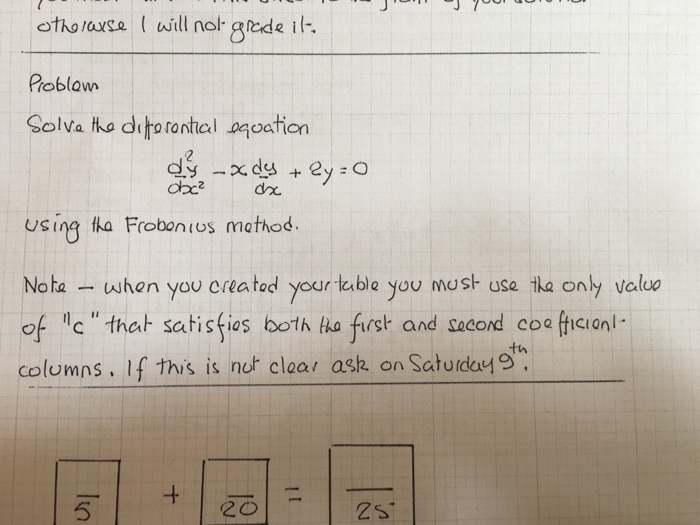 otherwise I will not grade it.
Problem
Solve the differential equation
d²y/dx² - x dy/dx + 2y = 0
using the Frobenius method.
Note - when you created your table you must use the only value
of "c" that satisfies both the first and second coefficient
columns. If this is not clear ask on Saturday 9th.
5 + 20 = 25